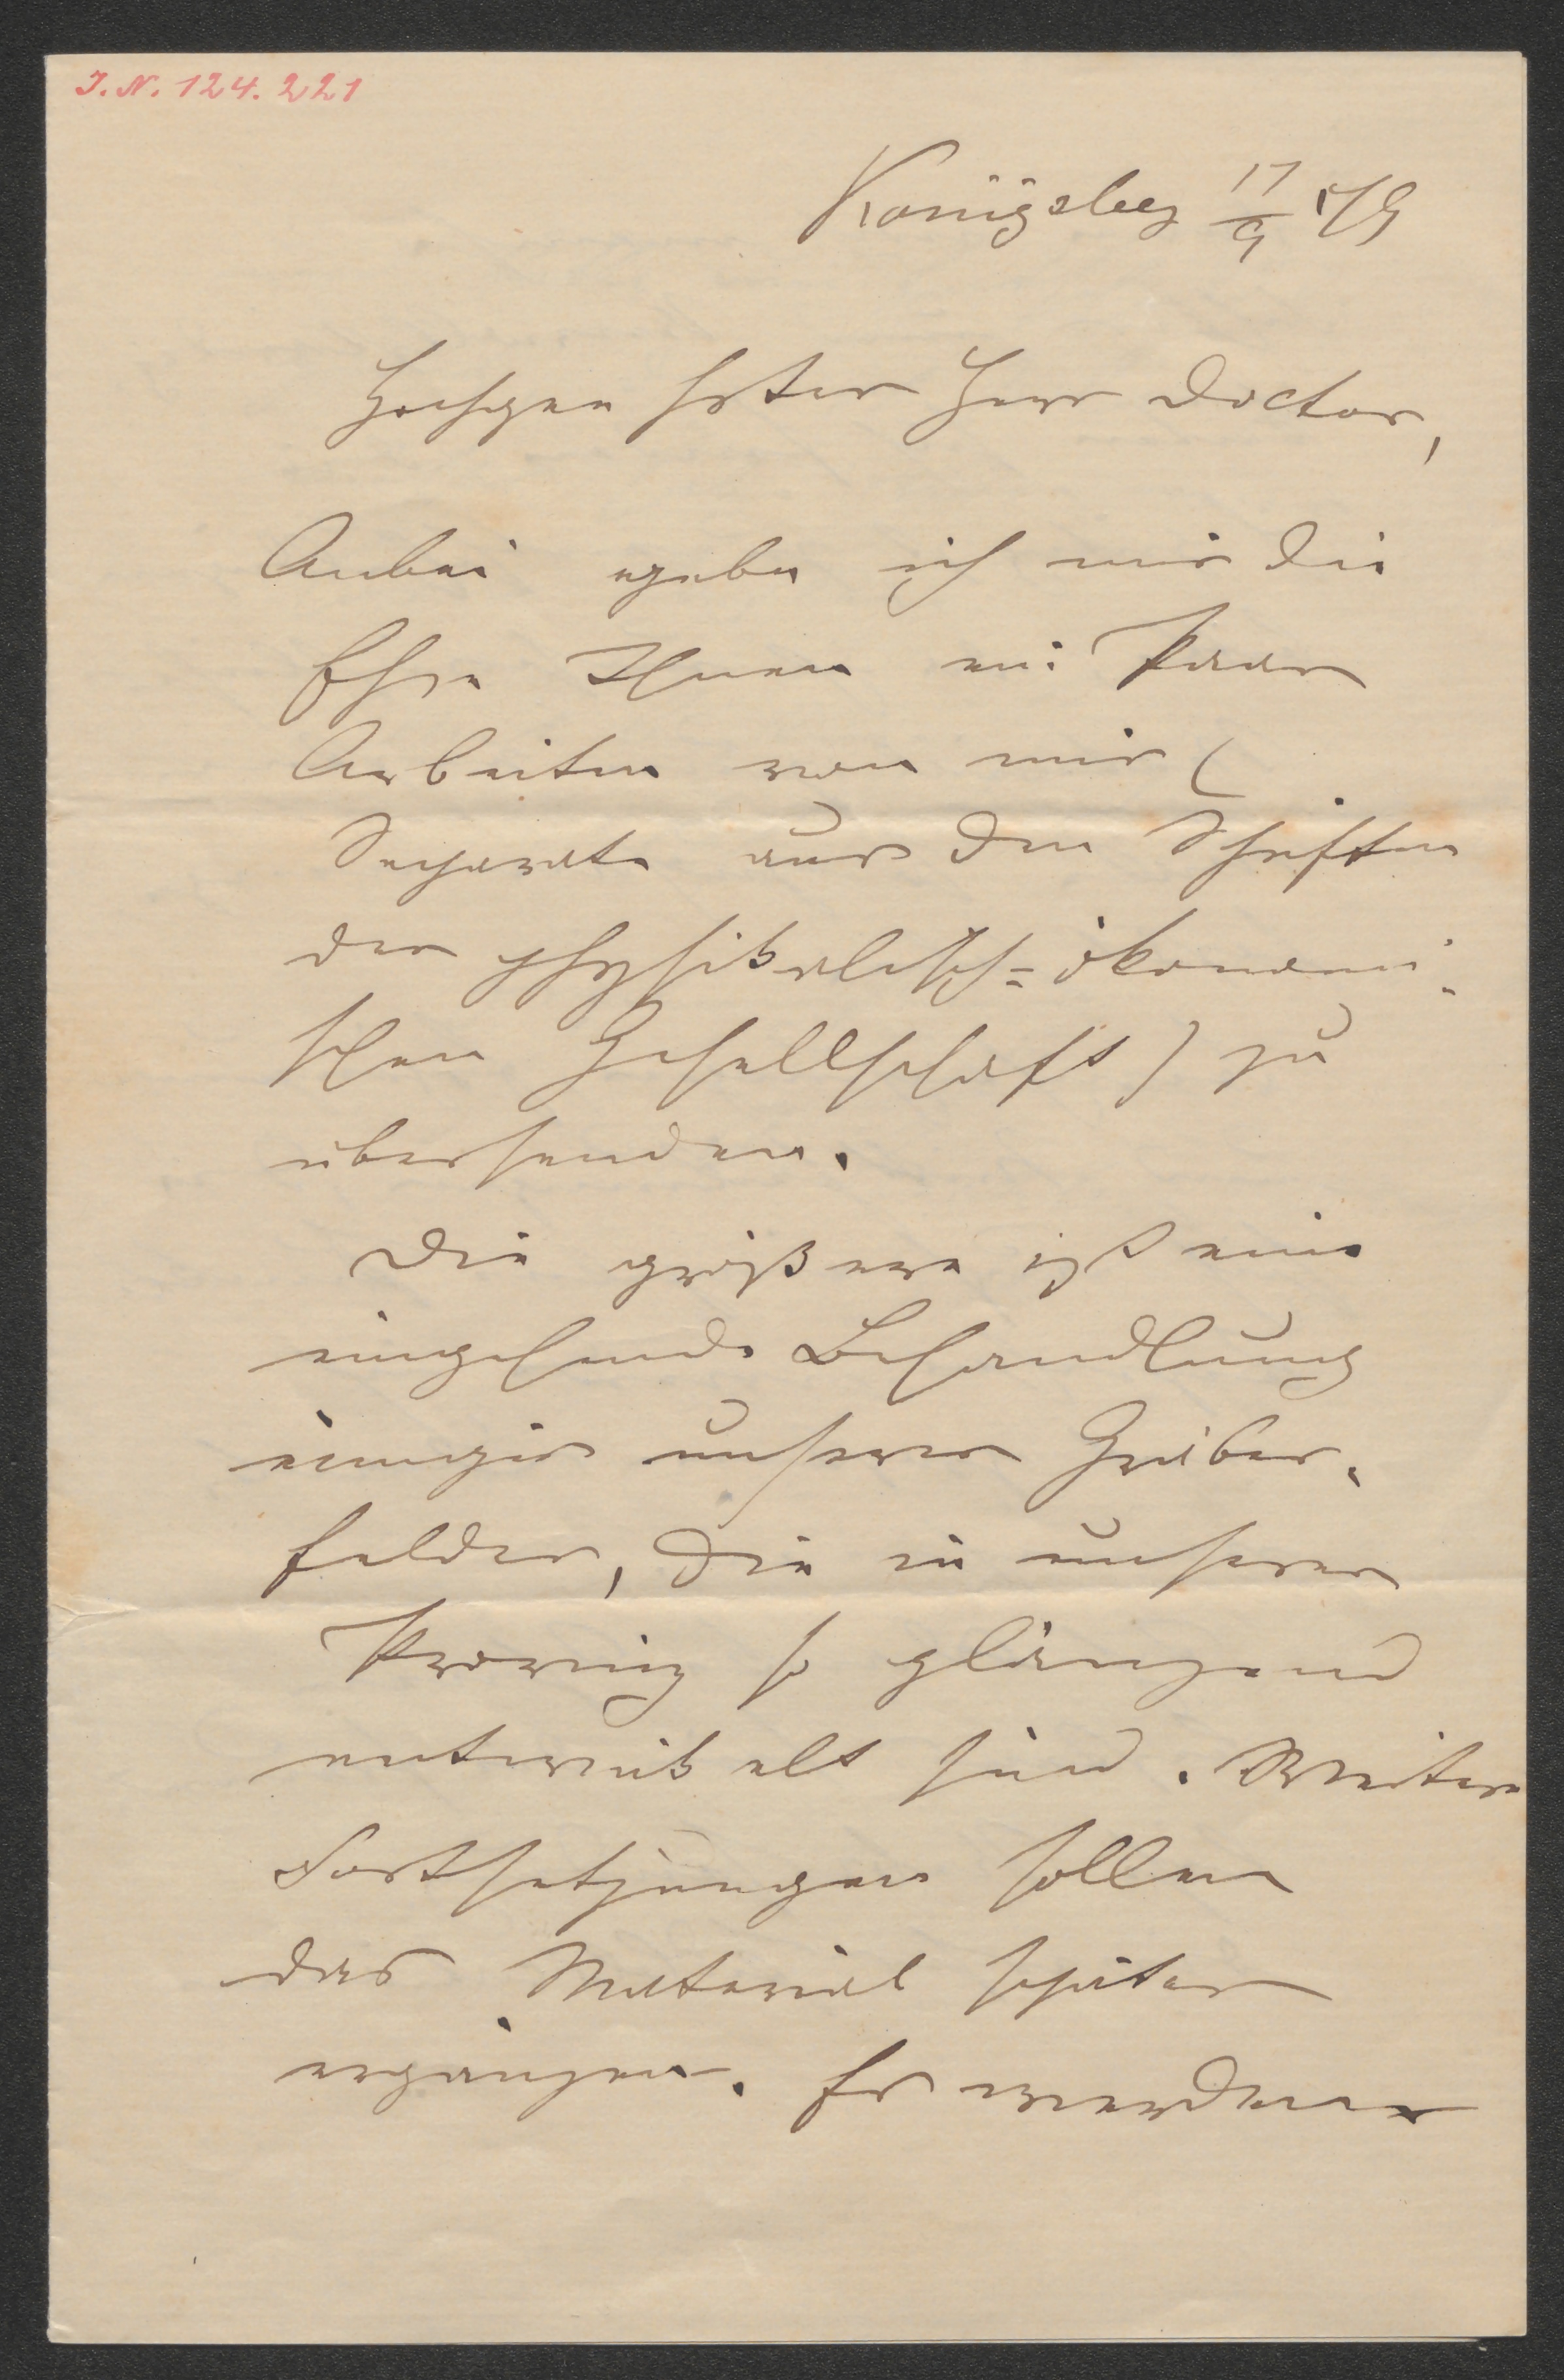 J. N. 124.221
Königsberg 17/9 79
Hochgeehrter Herr Doctor,
Anbei gebe ich mir die
Ehre Ihnen ein Paar
Arbeiten von mir (
Separate aus den Schriften
der physikalisch=ökonomi-
schen Gesellschaft) zu
übersenden.
Die größere ist eine
eingehende Behandlung
einiger unserer Gräber-
felder, die in unserer
Provinz so glänzend
entwickelt sind. Weitere
Fortsetzungen sollen
das Material später
ergänzen. Es werden